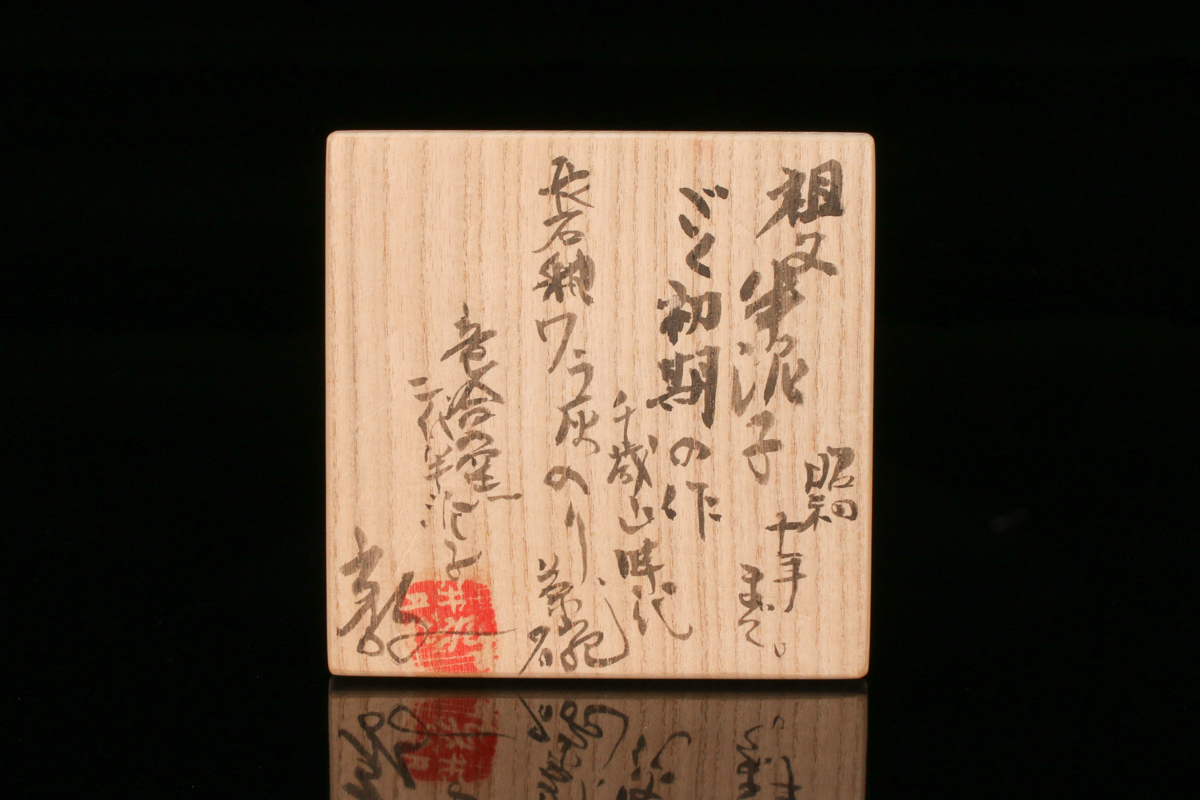 祖父半泥子
昭和
十年
まで。
ごく初期の作
千歳山時代
長石釉ワラ灰のり
茶碗
竜谷窯
二代半泥子